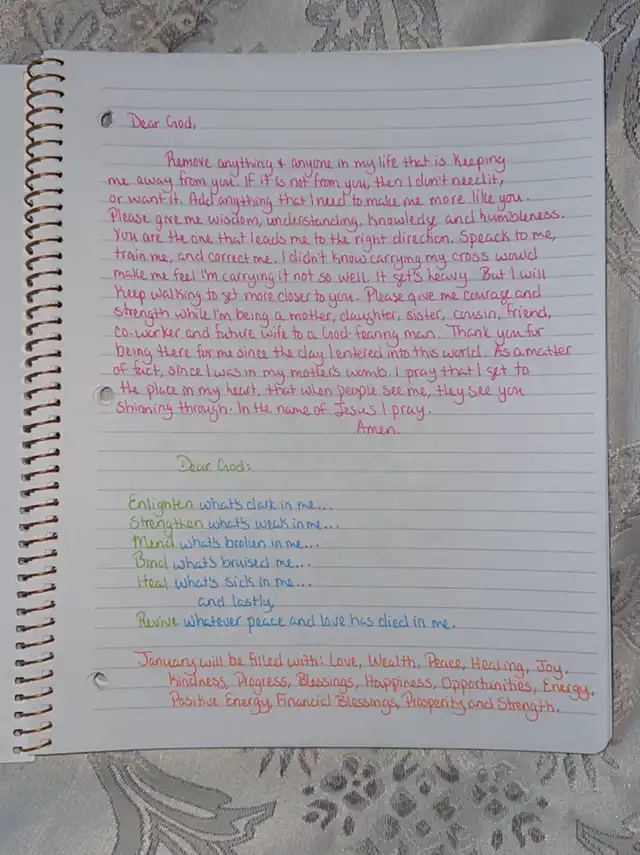 Dear God,
Remove anything & anyone in my life that is keeping
me away from you. If it is not from you, then I don't need it,
or want it. Add anything that I need to make me more like you.
Please give me wisdom, understanding, knowledge and humbleness.
You are the one that leads me to the right direction. Speack to me,
train me, and correct me. I didn't know carrying my cross would
make me feel I'm carrying it not so well. It get's heavy. But I will
keep walking to get more closer to you. Please give me courage and
strength while I'm being a mother, daughter, sister, cousin, friend,
co-worker and future wife to a God-fearing man. Thank you for
being there for me since the day I entered into this world. As a matter
of fact, since I was in my mother's womb. I pray that I get to
the place in my heart, that when people see me, they see you
shinning through. In the name of Jesus I pray.
Amen.
Dear God:
Enlighten what's dark in me...
Strengthen what's weak in me...
Mend what's broken in me...
Bind what's bruised me...
Heal what's sick in me...
and lastly,
Revive whatever peace and love has died in me.
January will be filled with: Love, Wealth, Peace, Healing, Joy,
Kindness, Progress, Blessings, Happiness, Opportunities, Energy,
Positive Energy, Financial Blessings, Prosperity and Strength.